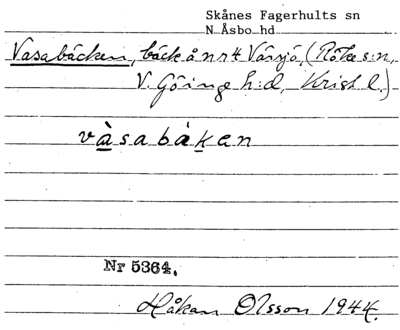 Skånes Fagerhults sn
N Åsbo hd
Vasabäcken, bäck å nr 4 Värsjö, (Röke s:n,
V. Göinge h:d, Krist l.)
vàsabàkan
Nr 5364.
Håkan Olsson 1944.